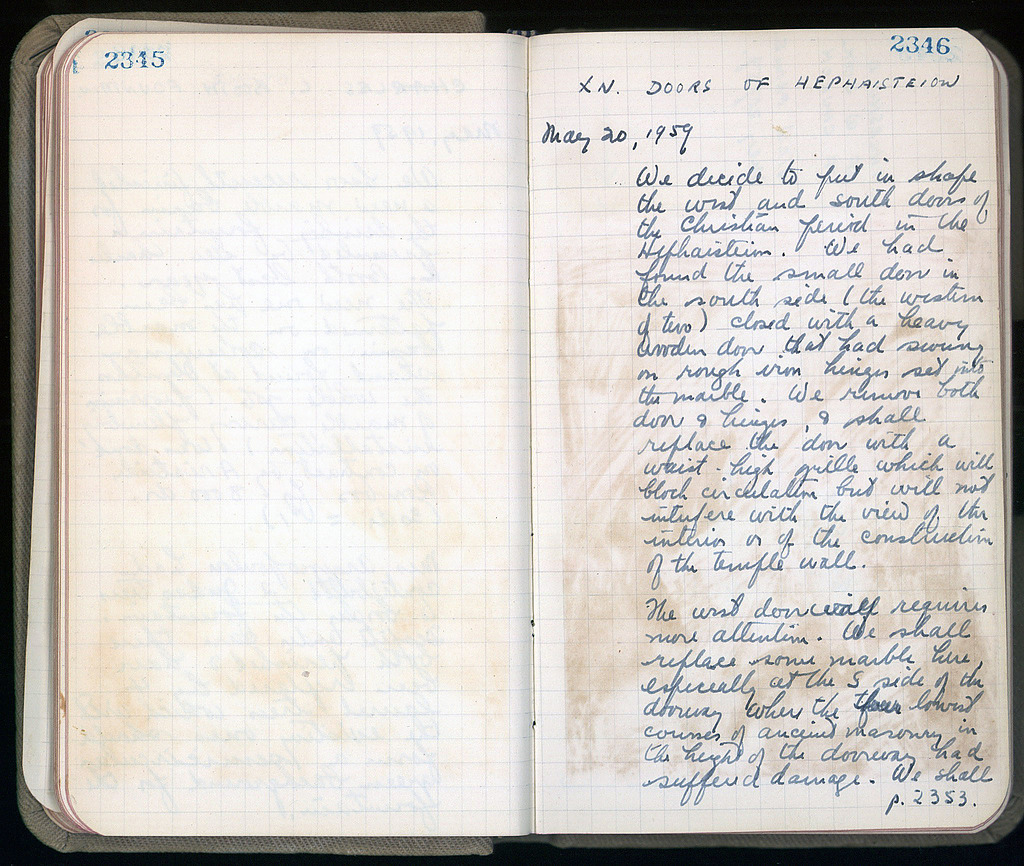 2345
2346
XN. DOORS OF HEPHAISTEION
May 20, 1959
We decide to put in shape
the west and south doors of
the Christian period in the
Hephaisteion. We had
found the small door in
the south side (the western
of two) closed with a heavy
wooden door that had swung
on rough iron hinges set into
the marble. We remove both
door & hinges, & shall
replace the door with a
waist-high grille which will
block circulation but will not
interfere with the view of the
interior or of the construction
of the temple wall.
The west door itself requires
more attention. We shall
replace some marble here,
especially at the S side of the
doorway where the four lowest
courses of ancient masonry in
the height of the doorway had
suffered damage. We shall
p. 2353.